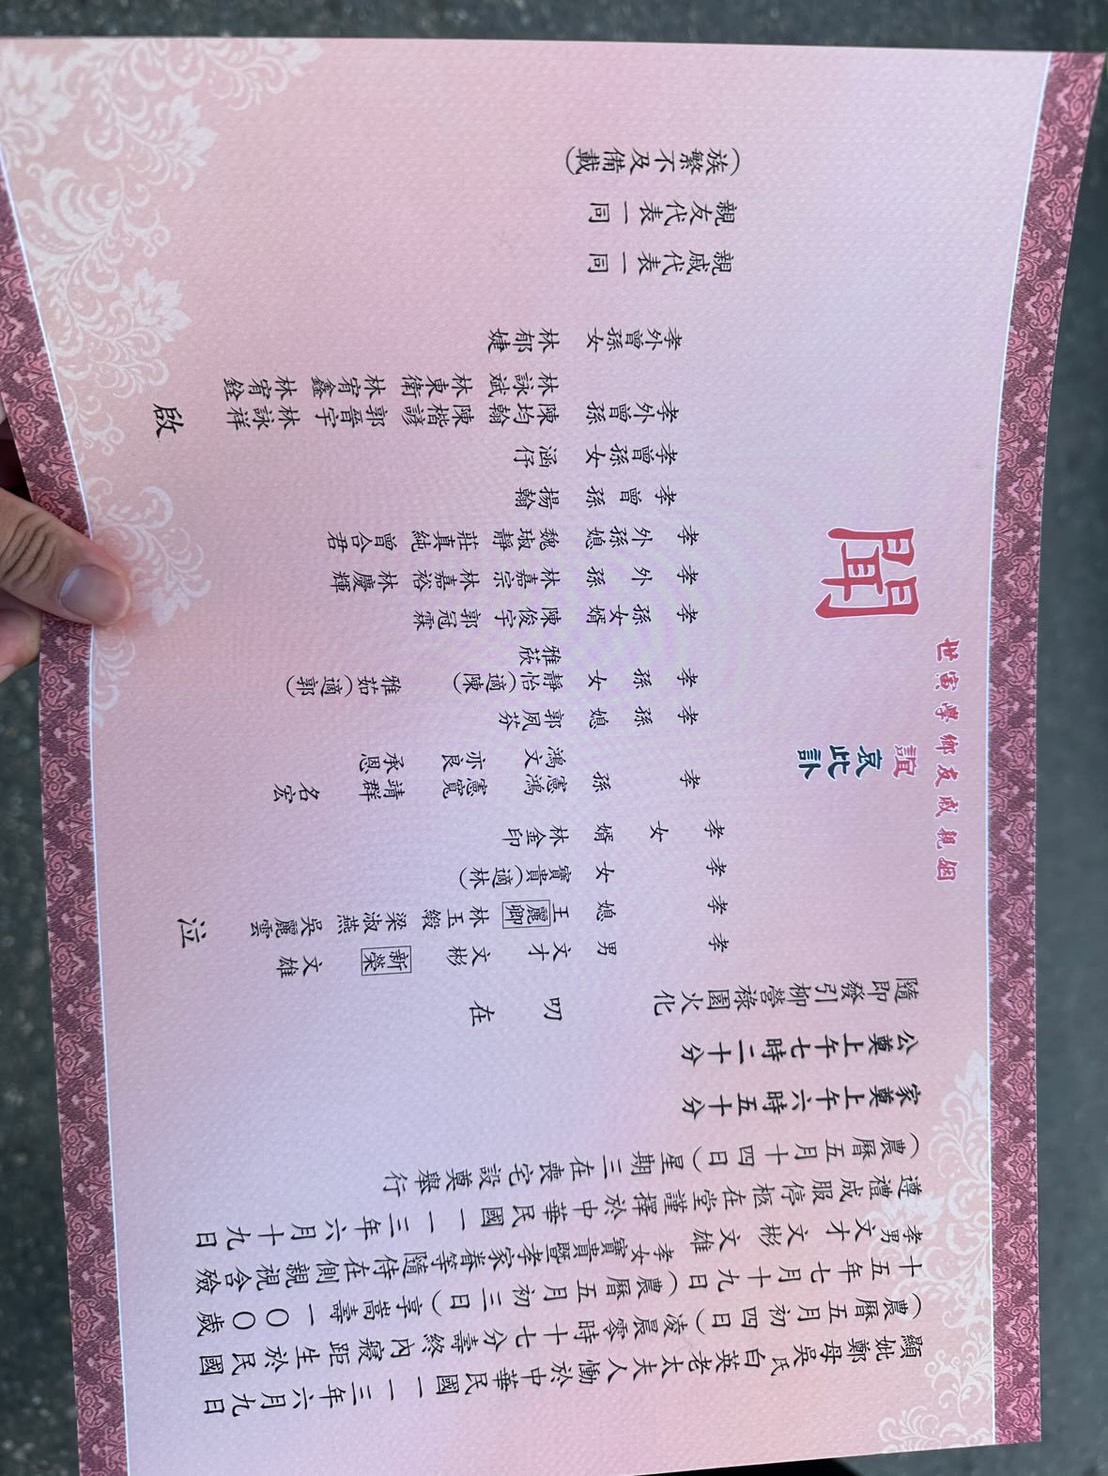 顯妣鄭母吳氏白英老太夫人慟於中華民國一一三年六月九日
(農曆五月初四日)凌晨零時十七分壽終內寢距生於民國
十五年七月十九日(農曆五月初三日)享嵩壽一〇〇歲
孝男文才文彬文雄孝女寶貴暨孝家眷等隨侍在側親視含殮
遵禮成服停柩在堂謹擇於中華民國一一三年六月十九日
(農曆五月十四日)星期三在喪宅設奠舉行
家奠上午六時五十分
公奠上午七時二十分
隨即發引柳營祿園火化
叨在
姻親戚友鄉學寅世
誼
哀此訃
聞
孝男 文才 文彬 新榮 文雄 泣
孝媳 王麗卿 林玉緞 梁淑燕 吳麗雲
孝女 寶貴(適林)
孝女婿 林金印
孝孫 憲鴻 憲寬 靖群 名宏
鴻文 亦良 承恩
孝孫媳 郭夙芬
孝孫女 靜怡(適陳) 雅茹(適郭)
雅欣
孝孫女婿 陳俊宇 郭冠霖
孝外孫 林嘉宗 林嘉裕 林慶輝
孝外孫媳 魏琡靜 莊真純 曾合君
孝曾孫 揚翰
孝曾孫女 涵伃
孝外曾孫 陳均翰 陳楷諺 郭晉宇 林詠祥 啟
林詠斌 林東衛 林宥鑫 林宥銓
孝外曾孫女 林郁婕
親戚代表一同
親友代表一同
(族繁不及備載)